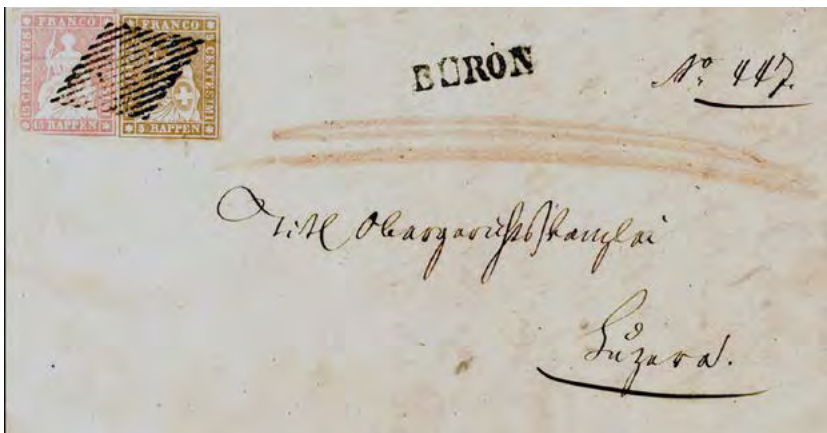 FRANCO
15 CENTIMES
15 RAPPEN
FRANCO
5 CENTESIMI
5 RAPPEN
BÜRON
No. 447.
Titl Obergerichtskanzlei
Luzern.